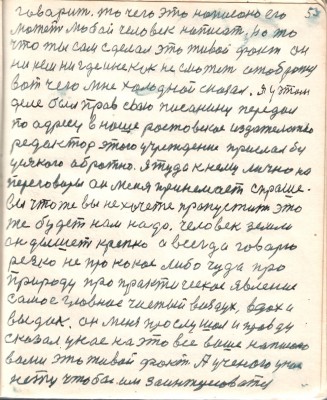 57
говорит. то чего это написоно его
может любой человек написат, но то
что ты сам сделал это живой факт он
ни кем ни где никок не сможет отоброжу
вот чего мне холодной сказал. Я у этом
деле был прав свою писанину передал
по адресу в наще ростовское издательство
редактор этого учреждение прислал бу
обротно. Я туда к нему лично на
переговоры он меня принемает спраше-
вы что же вы не хочете пропустит это
же будет нам надо. человек земли
он дышет крепко а всегда говорю
резко не про кокое либо чуда про
природу про практическое явление
самое главное чистый воздух, вдох и
выдих, он меня прослушал и провду
сказал у нас на это все ваше написоно
вами это живой факт. А ученого у нас
нету чтобы им заинтусовату